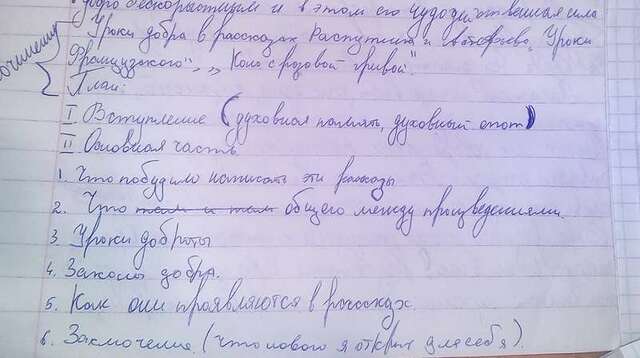 добро бескорыстии и в этом его чудодейственная сила
Уроки добра в рассказах Распутина и Астафьева „Уроки
Французского", „Конь с розовой гривой".
План:
I Вступление (духовная память, духовный опыт)
II Основная часть
1. Что побудило написать эти рассказы
2. Что общего между произведениями.
3 Уроки доброты
4. Законы добра.
5. Как они проявляются в рассказах.
6. Заключение. (Что нового я открыл для себя).